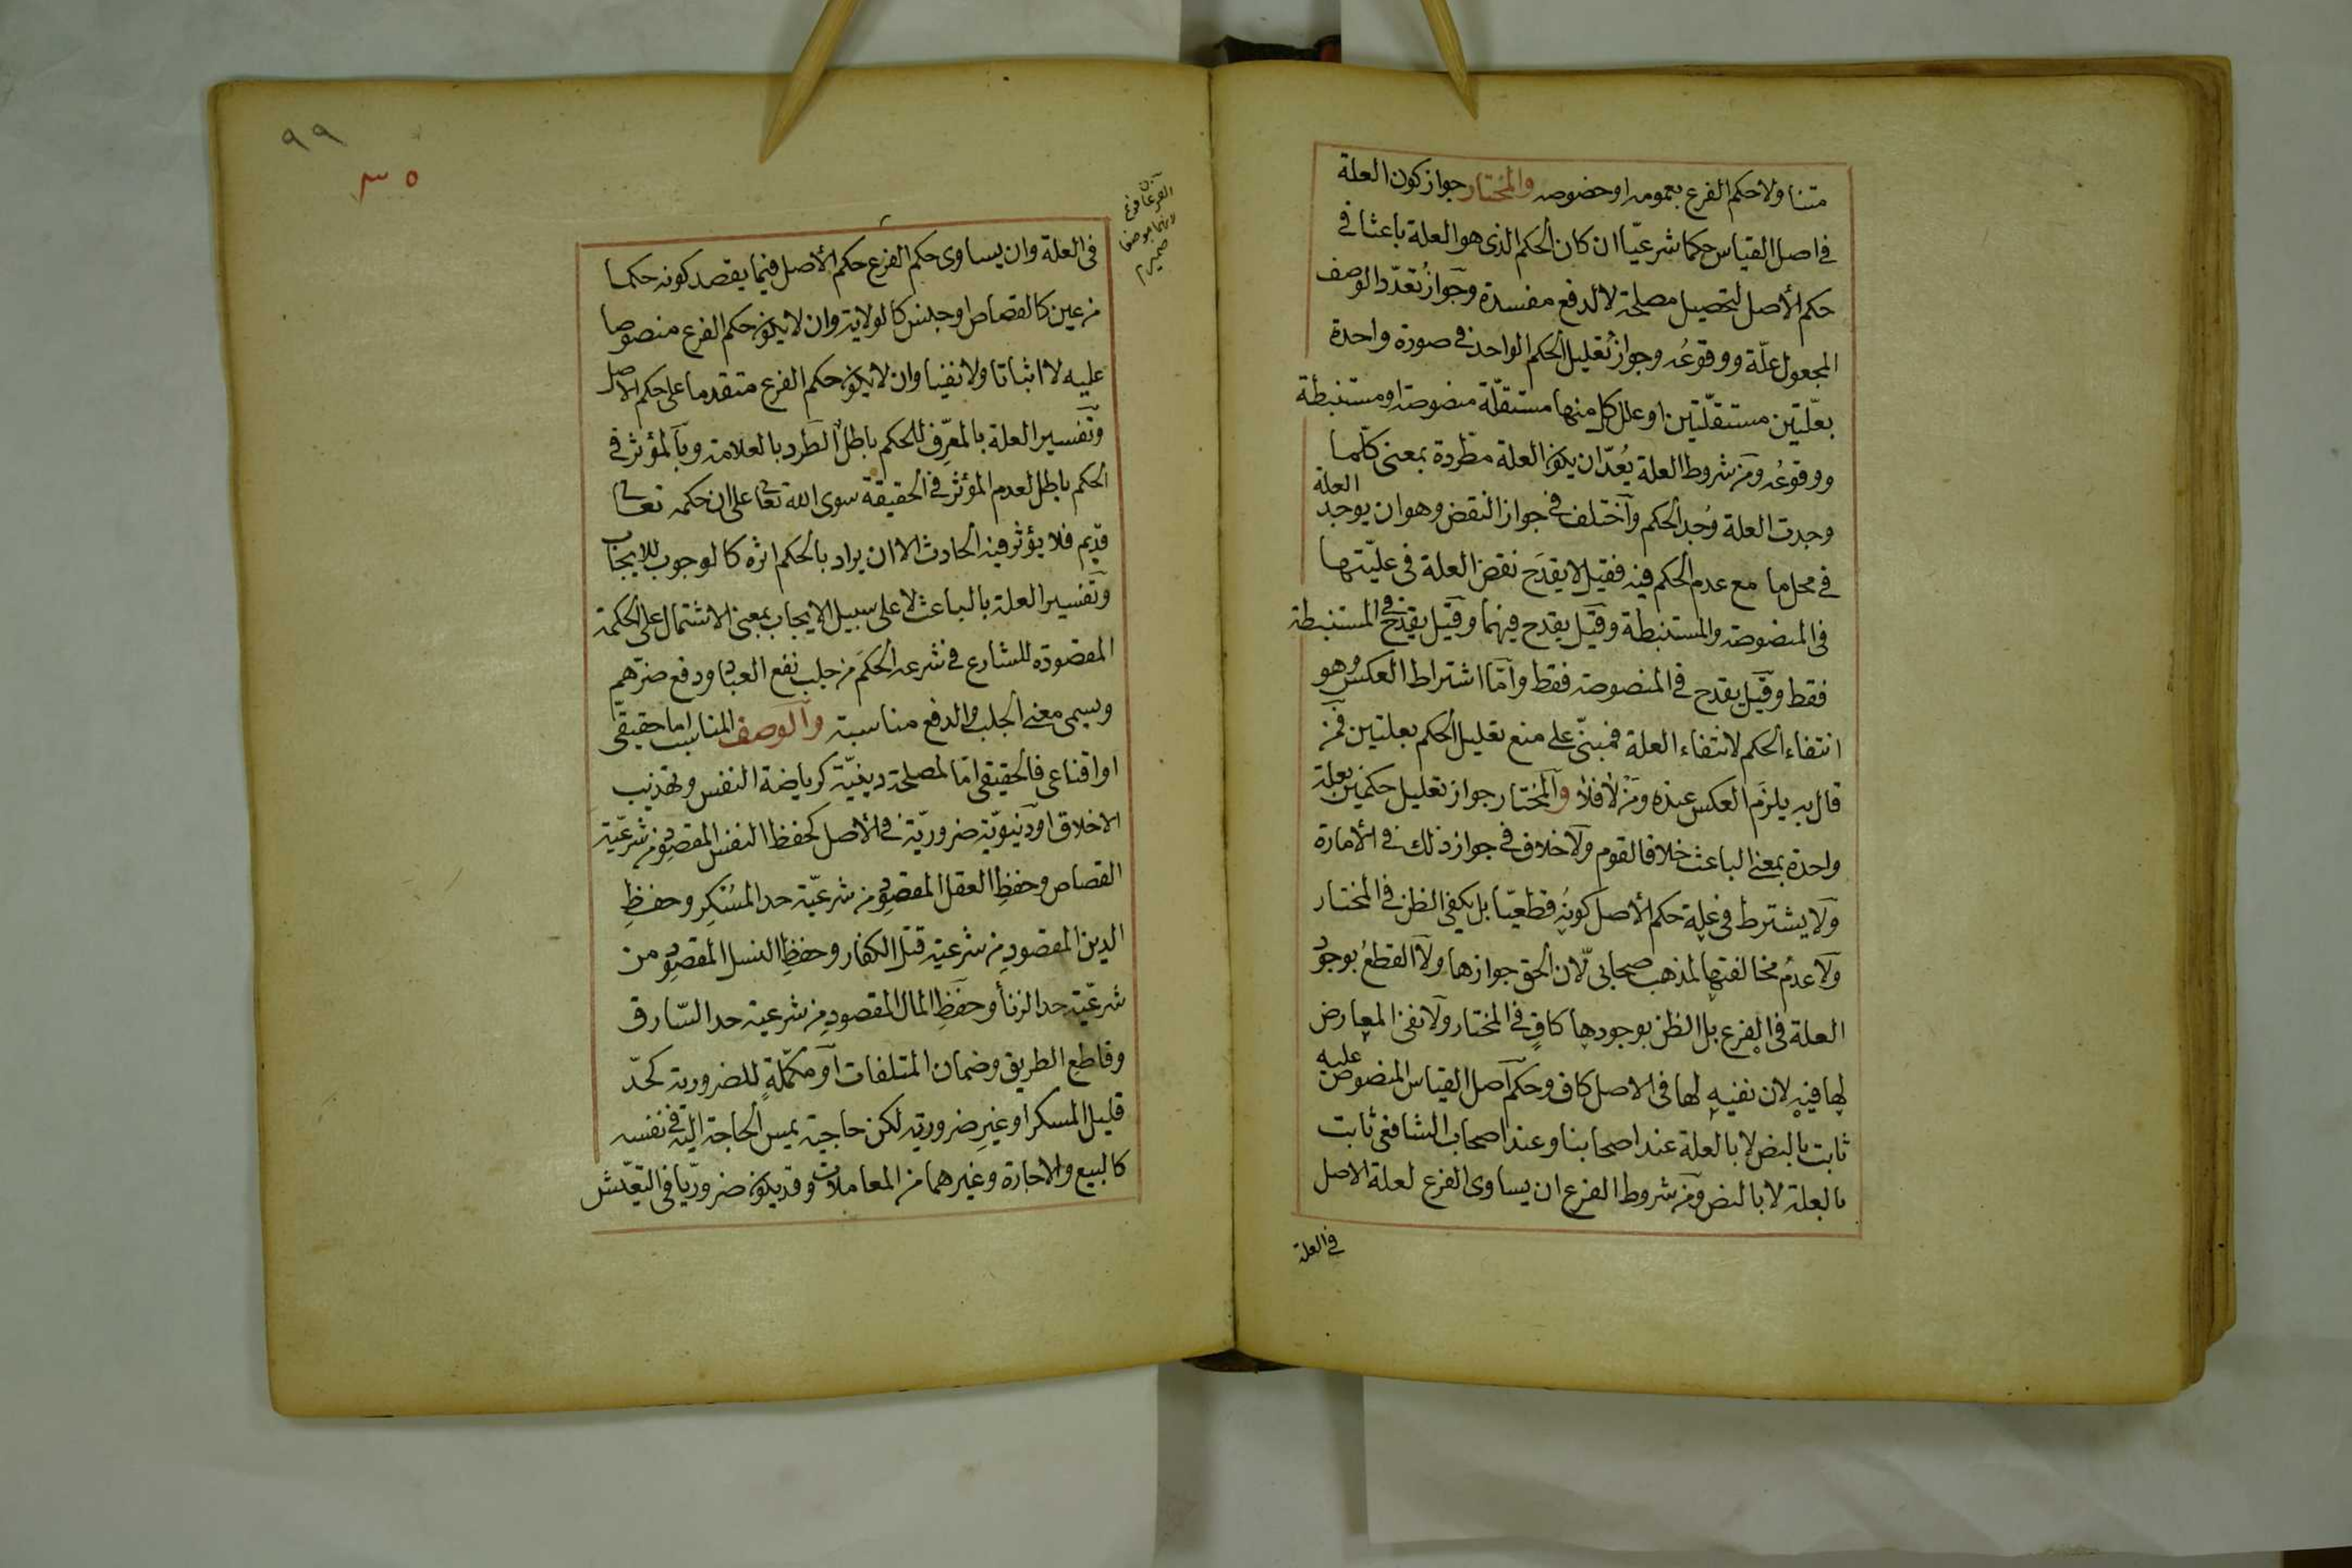 متناولا حكم الفرع بعمومه او خصوصه والمختار جواز كون العلة
فى اصل القياس حكما شرعيّا ان كان الحكم الذى هو العلة باعثا فى
حكم الأصل لتحصيل مصلحة لا لدفع مفسدة وجواز تعدّد الوصف
المجعول علّة ووقوعُه وجواز تعليل الحكم الواحد فى صورة واحدة
بعلّتين مستقلّتين او علل كل منها مستقلّة منصوصة او مستنبطة
ووقوعُه ومن شروط العلة يُعدّ ان يكون العلة مطّردة بمعنى كلّما
وجدت العلة وُجد الحكم وآختلف فى جواز النقض وهو ان يوجد العلة
فى محل ما مع عدم الحكم فيه فقيل لا يقدح نقض العلة فى عليّتها
فى المنصوصة والمستنبطة وقيل يقدح فيهما وقيل يقدح فى المستنبطة
فقط وقيل يقدح فى المنصوصة فقط وامّا اشتراط العكس وهو
انتفاء الحكم لانتفاء العلة فمبنىّ على منع تعليل الحكم بعلتين فمن
قال به يلزم العكس عنده ومن لا فلا والمختار جواز تعليل حكمين بعلة
واحدة بمعنى الباعث خلافا لقوم ولا خلاف فى جواز ذلك فى الأمارة
ولا يشترط فى علة حكم الأصل كونُه قطعيّا بل يكفى الظن فى المختار
ولا عدمُ مخالفتها لمذهب صحابىّ لان الحق جوازها ولا القطعُ بوجود
العلة فى الفرع بل الظن بوجودها كافٍ فى المختار ولا نفىُ المعارض
لها فيه لان نفيه لها فى الاصل كاف وحكم اصل القياس المنصوص عليه
ثابت بالنص لا بالعلة عند اصحابنا وعند اصحاب الشافعى ثابت
بالعلة لا بالنص ومن شروط الفرع ان يساوى الفرع لعلة الاصل
فى العلة
٩٩
٣٥
فى العلة وان يساوى حكم الفرع حكم الأصل فيما يقصد كونه حكما
من عين كالقصاص او جنس كالولاية وان لا يكون حكم الفرع منصوصا
عليه لا اثباتا ولا نفيا وان لا يكون حكم الفرع متقدما على حكم الاصل
وتفسير العلة بالمعرِّف للحكم باطل الطرد بالعلامة وبالمؤثر فى
الحكم باطل لعدم المؤثر فى الحقيقة سوى الله تعالى على ان حكمه تعالى
قديم فلا يؤثر فيه الحادث الا ان يراد بالحكم اثره كالوجوب للايجاب
وتفسير العلة بالباعث لا على سبيل الايجاب بمعنى الاشتمال على الحكمة
المقصودة للشارع فى شرعه الحكمَ من جلب نفع العباد ودفع ضرّهم
ويسمى معنى الجلب والدفع مناسبة والوصف المناسب اما حقيقىّ
او اقناعى فالحقيقى امّا لمصلحة دينيّة كرياضة النفس وتهذيب
الاخلاق او دنيويّة ضروريّة فى الأصل كحفظ النفس المقصود من شرعيّة
القصاص وحفظِ العقل المقصود من شرعيّة حد المُسْكِر وحفظِ
الدين المقصودِ من شرعية قتل الكفار وحفظِ النسل المقصود من
شرعيّة حد الزنا وحفظِ المال المقصودِ من شرعية حد السّارق
وقاطع الطريق وضمان المتلفات او مكمّلةٍ للضرورية كحدّ
قليل المسكر او غيرِ ضرورية لكن حاجية يمس الحاجة اليه فى نفسه
كالبيع والاجارة وغيرهما من المعاملات وقد يكون ضروريّا فى التعيّش